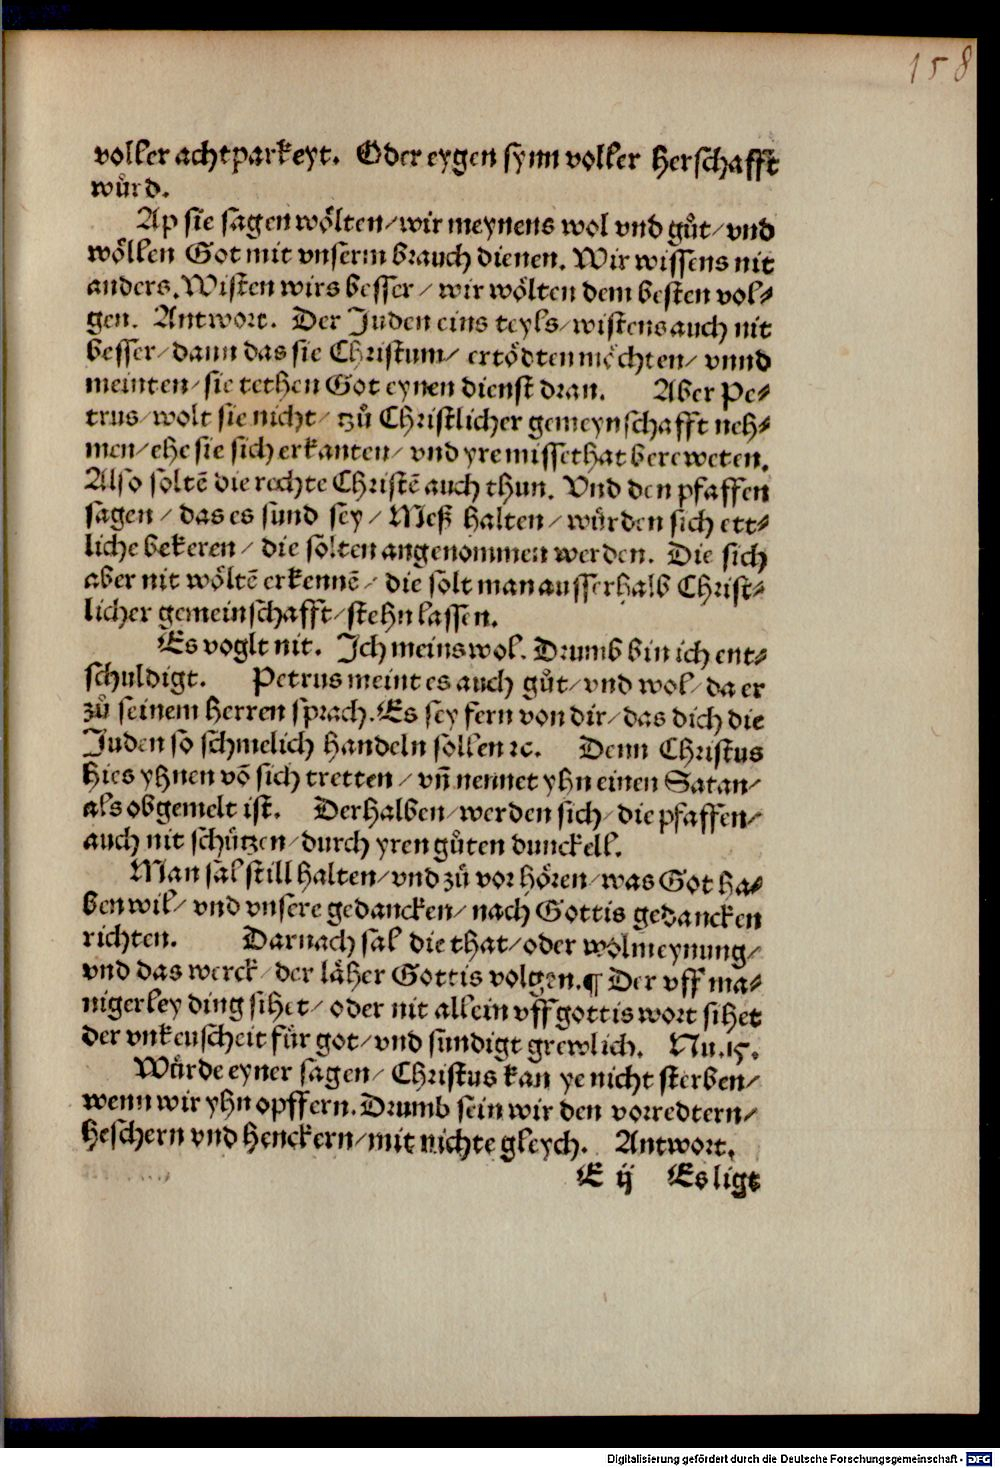 158
voller achtparkeyt. Oder eygen synn voller herschafft
wuͤrd.
Ap sie sagen woͤlten/ wir meynens wol vnd guͤt/ vnd
woͤllen Got mit vnserm brauch dienen. Wir wissens nit
anders. Wisten wirs besser/ wir woͤlten dem besten vol⸗
gen. Antwort. Der Juden eins teyls/ wistens auch nit
besser/ dann das sie Christum/ ertoͤdten moͤchten/ vnnd
meinten/ sie tethen Got eynen dienst dran. Aber Pe⸗
trus/ wolt sie nicht/ zuͤ Christlicher gemeynschafft neh⸗
men/ ehe sie sich erkanten/ vnd yre missethat bereweten.
Also soltē die rechte Christē auch thun. Vnd den pfaffen
sagen/ das es sund sey/ Meß halten/ wuͤrden sich ett⸗
liche bekeren/ die solten angenommen werden. Die sich
aber nit woͤltē erkennē/ die solt man ausserhalb Christ⸗
licher gemeinschafft/ stehn lassen.
Es voglt nit. Ich meins wol. Drumb bin ich ent⸗
schuldigt. Petrus meint es auch guͤt/ vnd wol/ da er
zuͤ seinem herren sprach. Es sey fern von dir/ das dich die
Juden so schmelich handeln sollen ꝛc. Denn Christus
hies yhnen vō sich tretten/ vñ nennet yhn einen Satan/
als obgemelt ist. Derhalben/ werden sich/ die pfaffen/
auch nit schuͤtzen/ durch yren guͤten dunckell.
Man sal still halten/ vnd zuͤ vor hoͤren/ was Got ha⸗
ben wil/ vnd vnsere gedancken/ nach Gottis gedancken
richten. Darnach sal die that/ oder wolmeynung/
vnd das werck/ der laͤher Gottis volgen. ¶ Der vff ma⸗
nigerley ding sihet/ oder nit allein vff gottis wort sihet
der vnkeuscheit fuͤr got/ vnd sundigt grewlich. Nu. 15.
Wuͤrde eyner sagen/ Christus kan ye nicht sterben/
wenn wir yhn opffern. Drumb sein wir den vorredtern/
heschern vnd henckern/ mit nichte gleych. Antwort.
E ij Es ligt
Digitalisierung gefördert durch die Deutsche Forschungsgemeinschaft - DFG